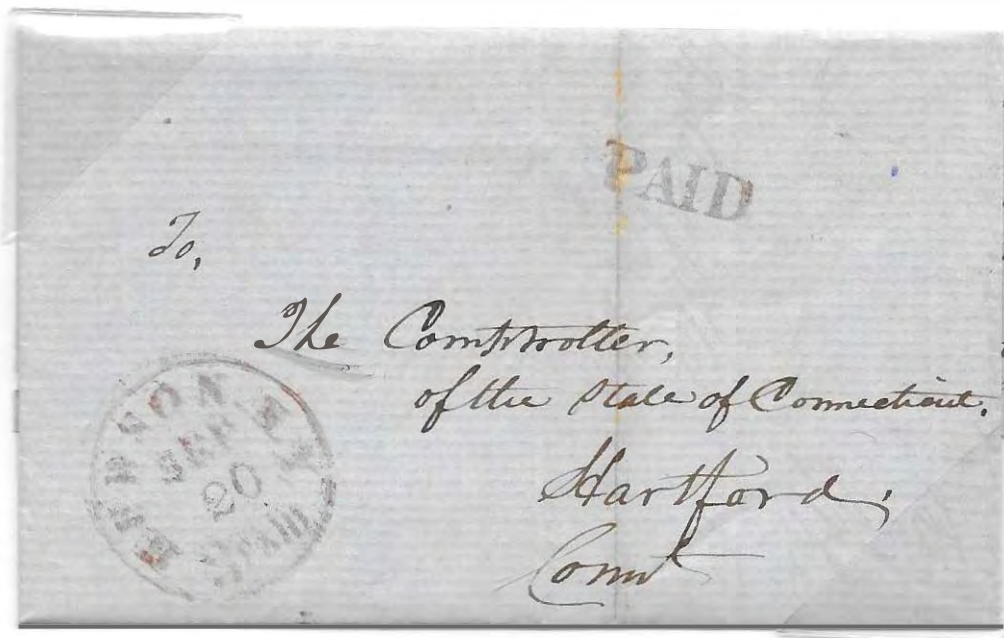 PAID
To,
The Comptroller,
of the State of Connecticut.
Hartford,
Connt
SEP
20